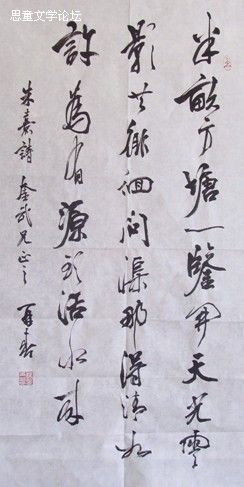 思童文学论坛
半畝方塘一鑒開天光雲
影共徘徊問渠那得清如
許為有源頭活水来
朱熹詩 奎武兄正之